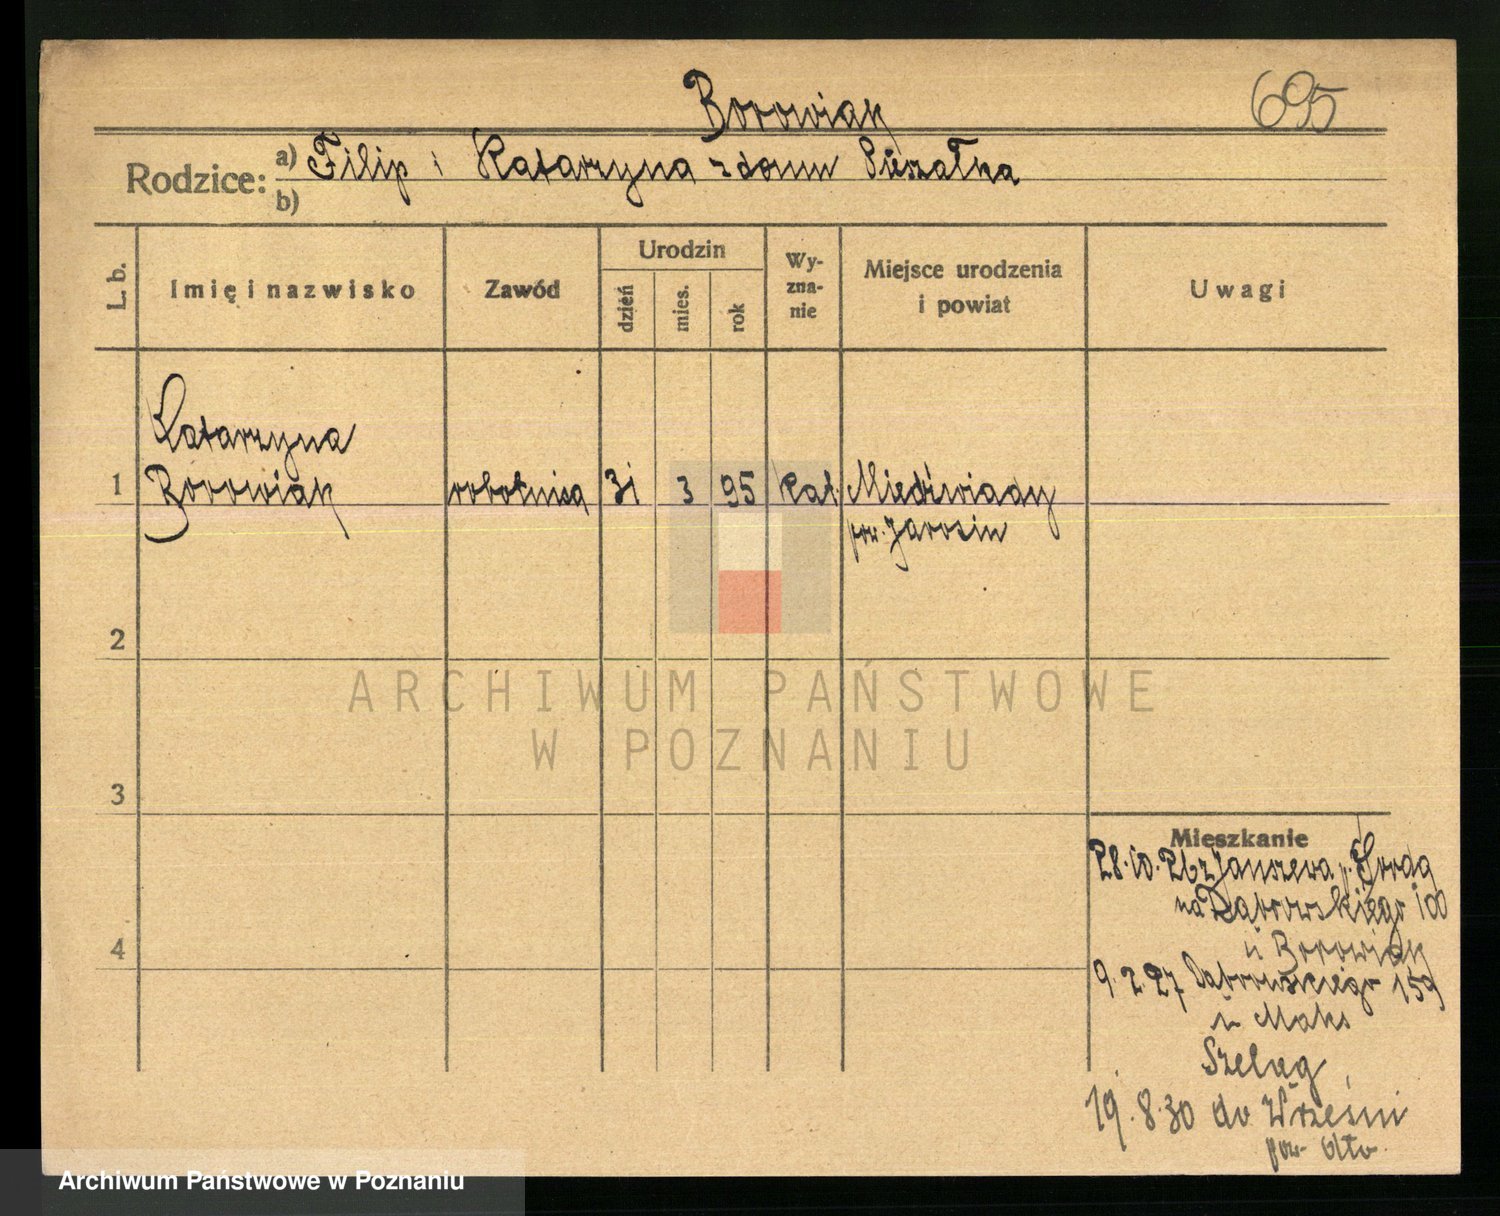 Borowiak
695
Rodzice: a) Filip i Katarzyna z domu
b)
L. b.
Imię i nazwisko
Zawód
Urodzin
dzień
mies.
rok
Wy-
zna-
nie
Miejsce urodzenia
i powiat
Uwagi
Katarzyna
1 Borowiak robotnica 31 3 95 kat. Miedźwiady
pow. Jarosin
2
ARCHIWUM PAŃSTWOWE
W POZNANIU
3
Mieszkanie
28.10.26 z Janszewa p.
na Dąbrowskiego 100
u Borowiak
4
9.2.27 Dąbrowskiego 159
u Maks
Szeląg
19.8.30 do Wrześni
pow.
Archiwum Państwowe w Poznaniu